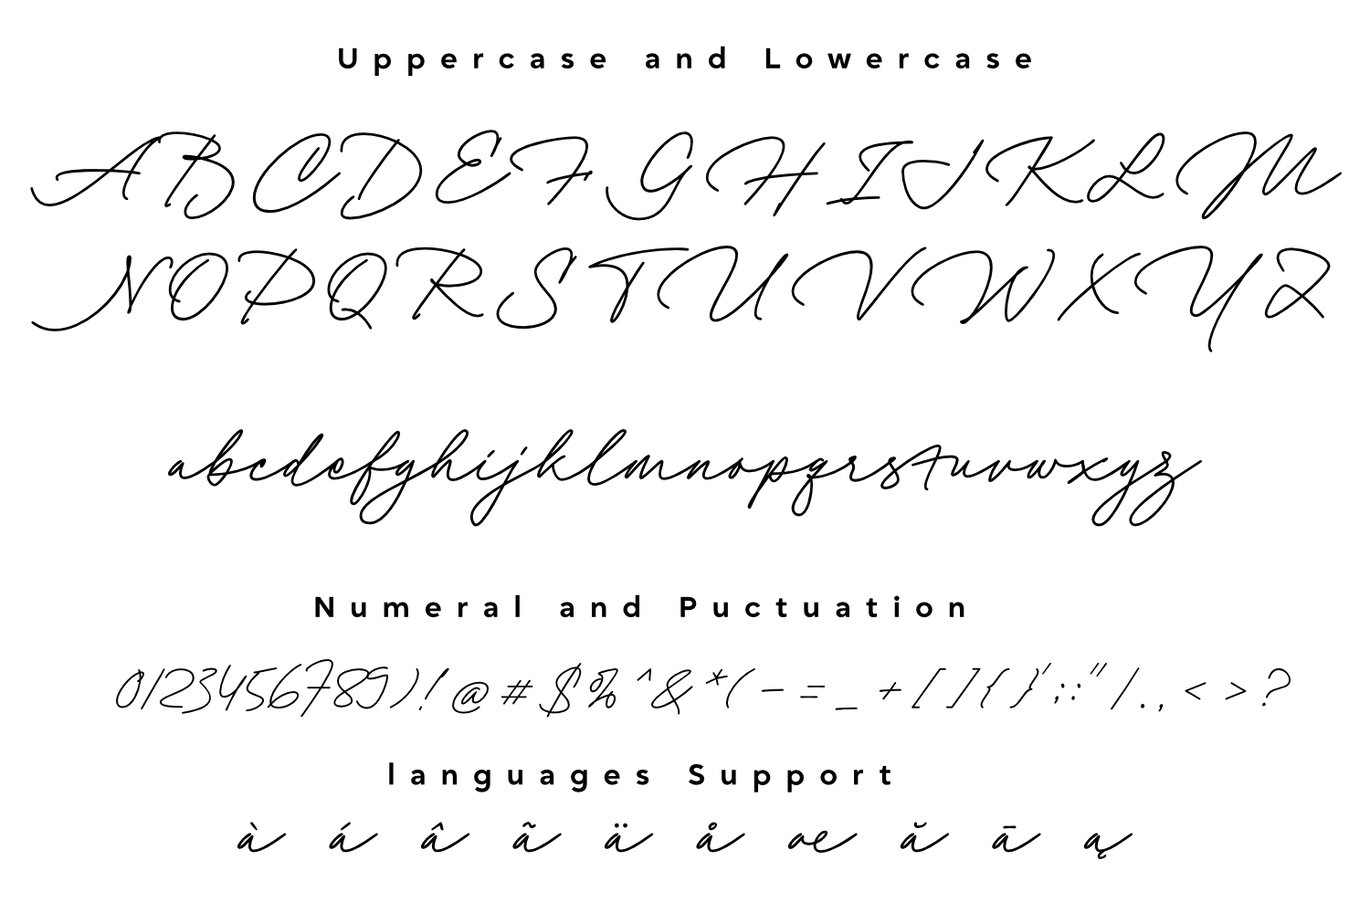 Uppercase and Lowercase
ABCDEFGHIJKLM
NOPQRSTUVWXYZ
abcdefghijklmnopqrstuvwxyz
Numeral and Puctuation
0123456789)!@#$%^&*(-=_+[]{}';:"/.,<>?
languages Support
à á â ã ä å œ ă ā ą